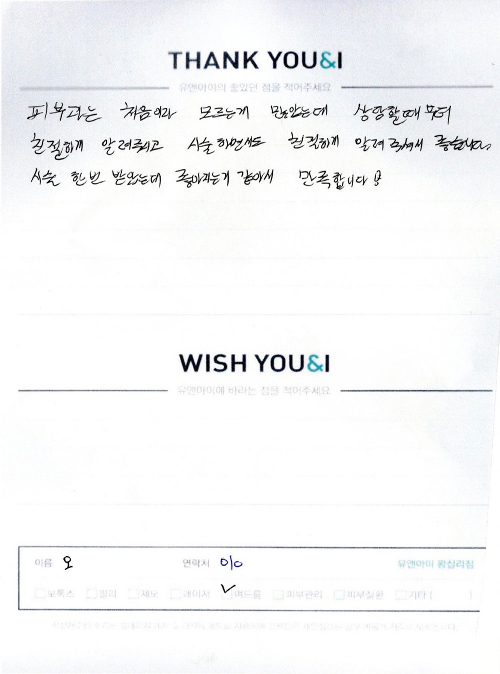 THANK YOU&I
유앤아이의 좋았던 점을 적어주세요
피부과는 처음이라 모르는게 많았는데 상담할때부터
친절하게 알려주시고 시술하면서도 친절하게 알려주셔서 좋습니다.
시술 한번 받았는데 좋아지는거 같아서 만족합니다!
WISH YOU&I
유앤아이에 바라는 점을 적어주세요
이름 오 연락처 010 유앤아이 왕십리점
보톡스 필러 제모 레이저 ✓여드름 피부관리 피부질환 기타 ( )